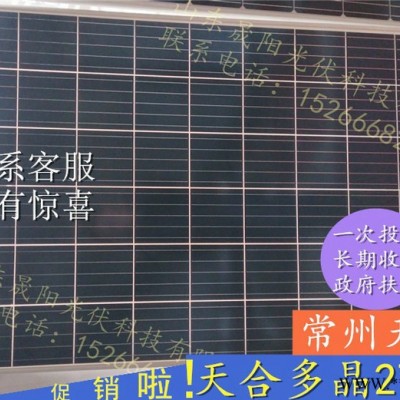 山东晟阳光伏科技
联系电话：15266682
系客服
有惊喜
一次投
长期收
政府扶
晟阳光伏科技有
电话：15266
常州天
促销啦！天合多晶2
www